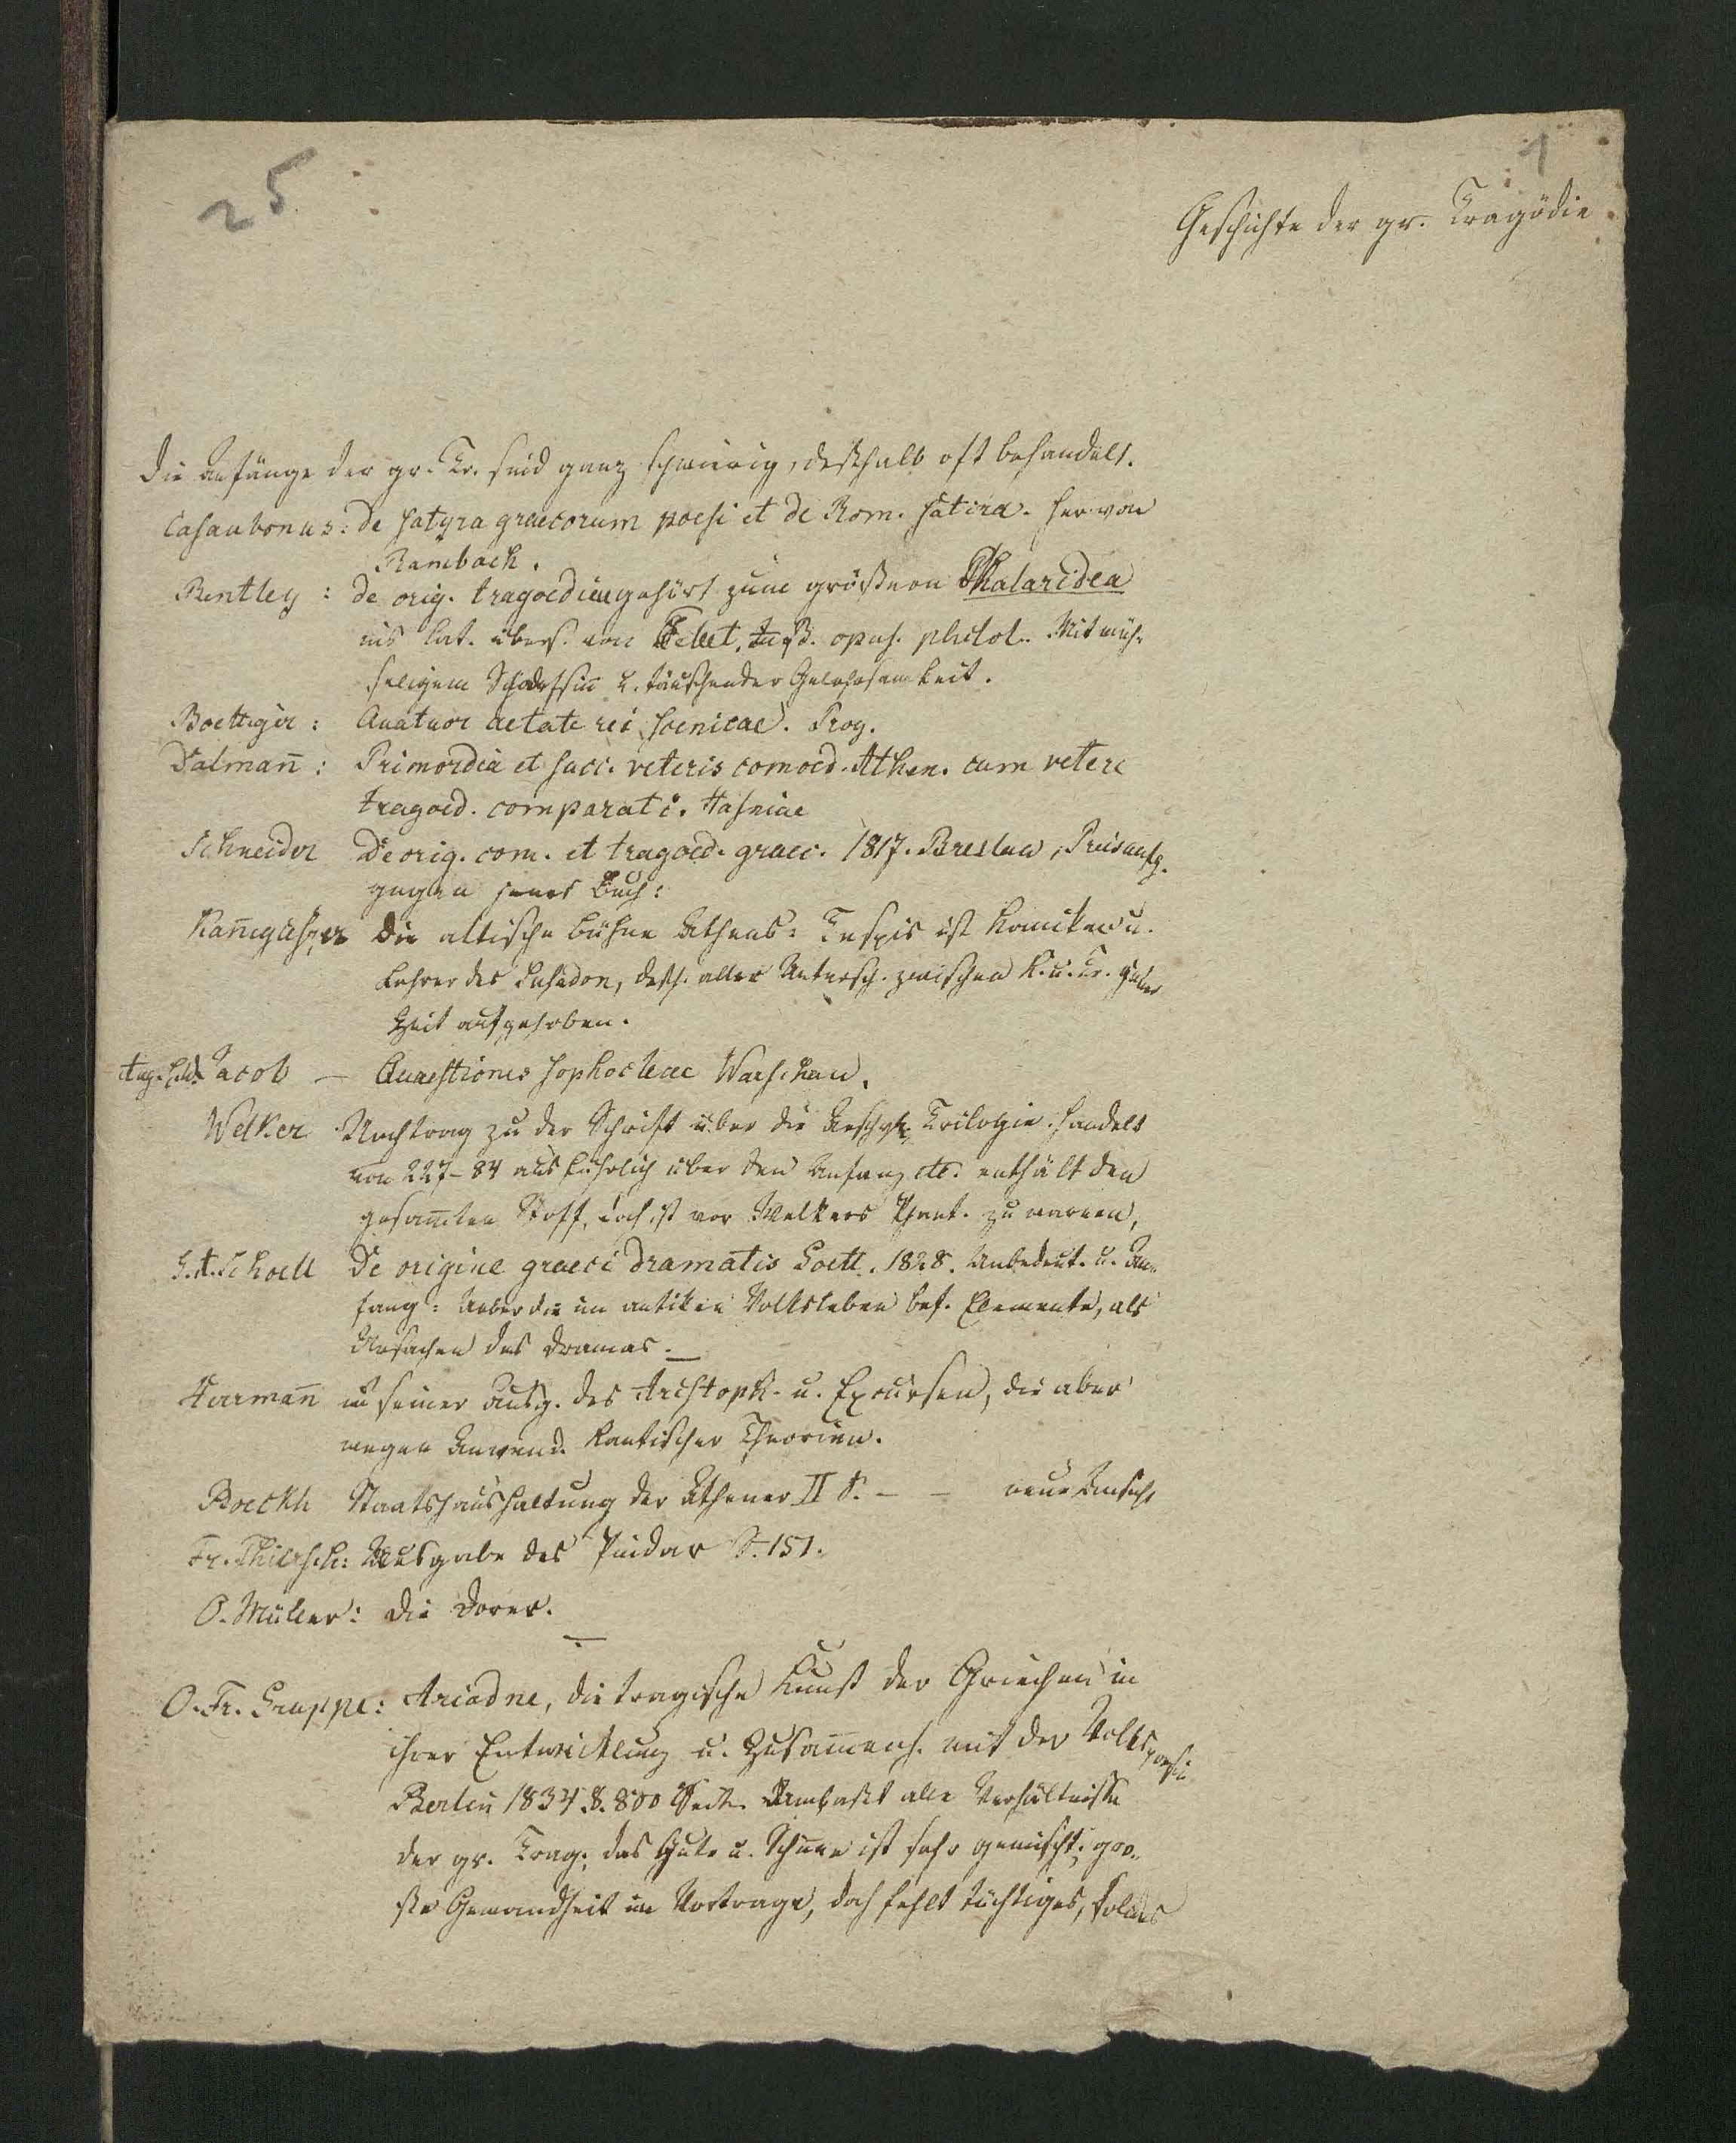 25
1
Geschichte der gr. Tragödie
Die Anfänge der gr. Tr. sind ganz schwierig, deßhalb oft behandelt.
Casaubonus: de satyra graecorum poesi et de Rom. satira. her. von
Rambach.
Bentley: de orig. tragoediae gehört zum größern Phalaridea
ins Lat. übers. von opus. philol. Mit müh-
seligem Scharfsinn u. täuschender Gelehrsamkeit.
Boettiger: Quatuor aetate rei scenicae. Prog.
Dalman̄: Primordia et succ. veteris comoed. Athen. cum vetere
tragoed. comparati. Hafniae
Schneider De orig. com. et tragoed. graec. 1817. Breslau, Preisaufg.
gegen jenes Buch:
Kan̄egiesser Die altische Bühne Athens: Tespis ist Komiker u.
Lehrer des Susadon, dessh. aller Untersch. zwischen K. u. Tr. jener
Zeit aufgehoben.
Aug. Jacob — Quaestiones sophocleae Warschau.
Welker Nachtrag zu der Schrift über die Aeschyl. Trilogie. handelt
von 227-84 ausführlich über den Anfang etc. enthält den
gesam̄ten Stoff, doch ist vor Welkers Phant. zu warnen,
G. A. Schoell De origine graeci dramatis Goett. 1828. Unbedeut. u. An-
fang: Ueber die im antiken Volksleben bef. Elemente, als
Ursachen des Dramas. —
Herrman̄ in seiner Ausg. des Aristoph. u. Excursen, die aber
wegen Anwend. Kantischer Theorien.
Boeckh Staatshaushaltung der Athener II S. — — neue Ansicht
Fr. Thiersch: Ausgabe des Pindar S. 151.
O. Müller: Die Dorer.
O. Fr. Gruppe: Ariadne, die tragische Kunst der Griechen in
ihrer Entwicklung u. Zusam̄enh. mit der Volkspoesie
Berlin 1834. 8. 800 Seit. Umfaßt alle Verhältnisse
der gr. Trag. das Gute u. ist sehr gemischt; gro-
ße Gewandheit im Vortrage, doch fehlt tüchtiges, solides